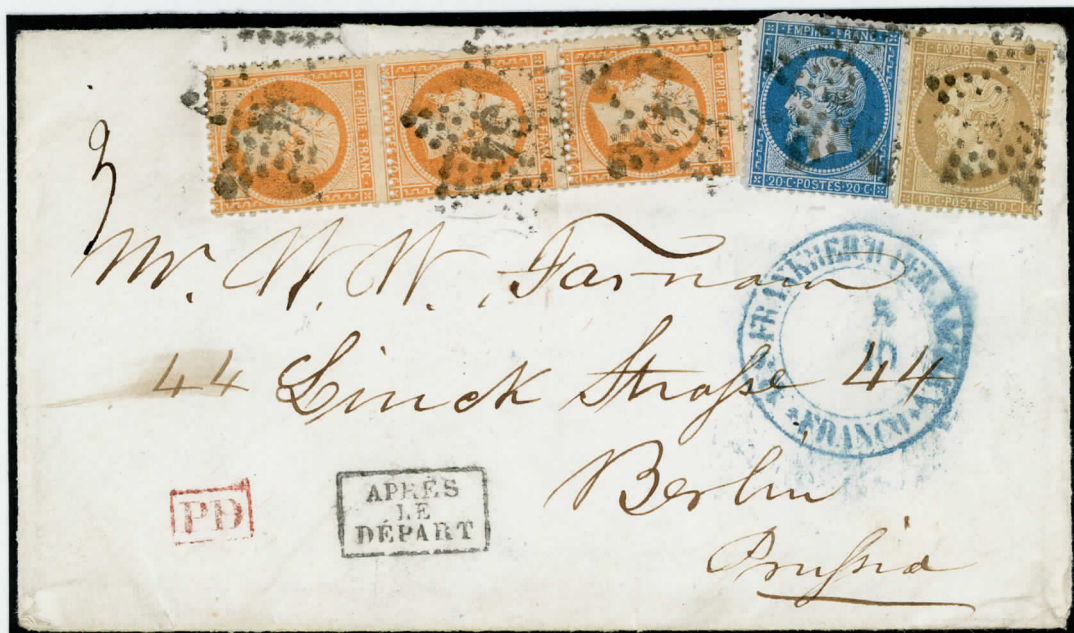 EMPIRE FRANC
EMPIRE FRANC
EMPIRE FRANC
EMPIRE FRANC
20 C POSTES 20 C
EMPIRE FRANC
10 C POSTES 10 C
Mr. W. W. Farnam
44 Linck Straße 44
Berlin
Prußia
AUS FRANKREICH PER AACHEN
5
10
FRANCO
PD
APRÈS
LE
DÉPART